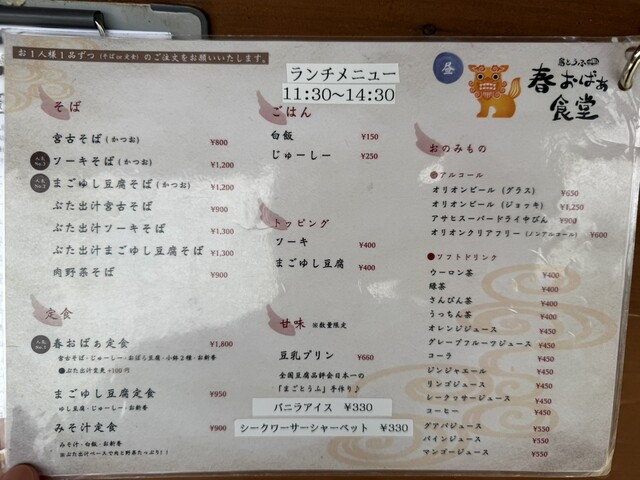 お1人様1品ずつ(そばor定食)のご注文をお願いいたします。
ランチメニュー
11:30～14:30
昼
島とうふ
春おばぁ
食堂
そば
宮古そば(かつお) ¥800
人気No.2 ソーキそば(かつお) ¥1,200
人気No.3 まごゆし豆腐そば(かつお) ¥1,200
ぶた出汁宮古そば ¥900
ぶた出汁ソーキそば ¥1,300
ぶた出汁まごゆし豆腐そば ¥1,300
肉野菜そば ¥900
定食
人気No.1 春おばぁ定食 ¥1,800
宮古そば・じゅーしー・おぼろ豆腐・小鉢2種・お新香
●ぶた出汁変更+100円
まごゆし豆腐定食 ¥950
ゆし豆腐・じゅーしー・お新香
みそ汁定食 ¥900
みそ汁・白飯・お新香
※ぶた出汁ベースで肉と野菜たっぷり!!
ごはん
白飯 ¥150
じゅーしー ¥250
トッピング
ソーキ ¥400
まごゆし豆腐 ¥400
甘味 ※数量限定
豆乳プリン ¥660
全国豆腐品評会日本一の
「まごとうふ」手作り♪
バニラアイス ¥330
シークワーサーシャーベット ¥330
おのみもの
●アルコール
オリオンビール(グラス) ¥650
オリオンビール(ジョッキ) ¥1,250
アサヒスーパードライ中びん ¥900
オリオンクリアフリー(ノンアルコール) ¥600
●ソフトドリンク
ウーロン茶 ¥400
緑茶 ¥400
さんぴん茶 ¥400
うっちん茶 ¥400
オレンジジュース ¥450
グレープフルーツジュース ¥450
コーラ ¥450
ジンジャエール ¥450
リンゴジュース ¥450
シークヮーサージュース ¥450
コーヒー ¥450
グアバジュース ¥550
パインジュース ¥550
マンゴージュース ¥550